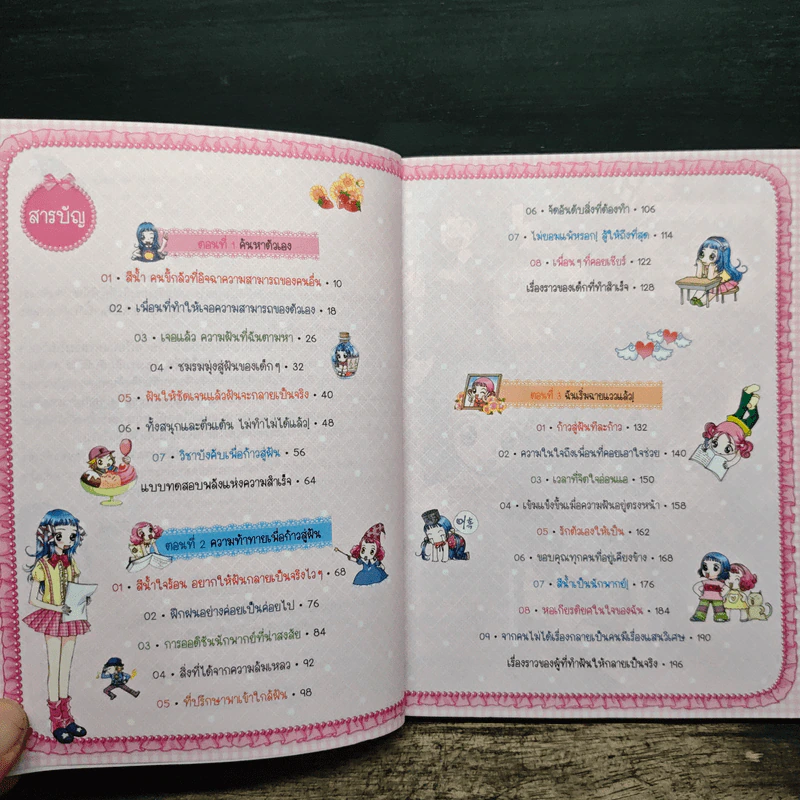 สารบัญ
ตอนที่ 1 ค้นหาตัวเอง
01 • สีน้ำ คนขี้กลัวที่อิจฉาความสามารถของคนอื่น • 10
02 • เพื่อนที่ทำให้เจอความสามารถของตัวเอง • 18
03 • เจอแล้ว ความฝันที่ฉันตามหา • 26
04 • ชมรมมุ่งสู่ฝันของเด็กๆ • 32
05 • ฝันให้ชัดเจนแล้วฝันจะกลายเป็นจริง • 40
06 • ทั้งสนุกและตื่นเต้น ไม่ทำไม่ได้แล้ว! • 48
07 • วิชาบังคับเพื่อก้าวสู่ฝัน • 56
แบบทดสอบพลังแห่งความสำเร็จ • 64
ตอนที่ 2 ความท้าทายเพื่อก้าวสู่ฝัน
01 • สีน้ำใจร้อน อยากให้ฝันกลายเป็นจริงไวๆ • 68
02 • ฝึกฝนอย่างค่อยเป็นค่อยไป • 76
03 • การออดิชันนักพากย์ที่น่าสงสัย • 84
04 • สิ่งที่ได้จากความล้มเหลว • 92
05 • ที่ปรึกษาพาเข้าใกล้ฝัน • 98
06 • จัดอันดับสิ่งที่ต้องทำ • 106
07 • ไม่ยอมแพ้หรอก! สู้ให้ถึงที่สุด • 114
08 • เพื่อนๆ ที่คอยเชียร์ • 122
เรื่องราวของเด็กที่ทำสำเร็จ • 128
ตอนที่ 3 ฉันเริ่มฉายแววแล้ว!
01 • ก้าวสู่ฝันทีละก้าว • 132
02 • ความในใจถึงเพื่อนที่คอยเอาใจช่วย • 140
03 • เวลาที่จิตใจอ่อนแอ • 150
04 • เข้มแข็งขึ้นเพื่อความฝันอยู่ตรงหน้า • 158
05 • รักตัวเองให้เป็น • 162
06 • ขอบคุณทุกคนที่อยู่เคียงข้าง • 168
07 • สีน้ำเป็นนักพากย์! • 176
08 • หอเกียรติยศในใจของฉัน • 184
09 • จากคนไม่ได้เรื่องกลายเป็นคนมีเรื่องแสนวิเศษ • 190
เรื่องราวของผู้ที่ทำฝันให้กลายเป็นจริง • 196